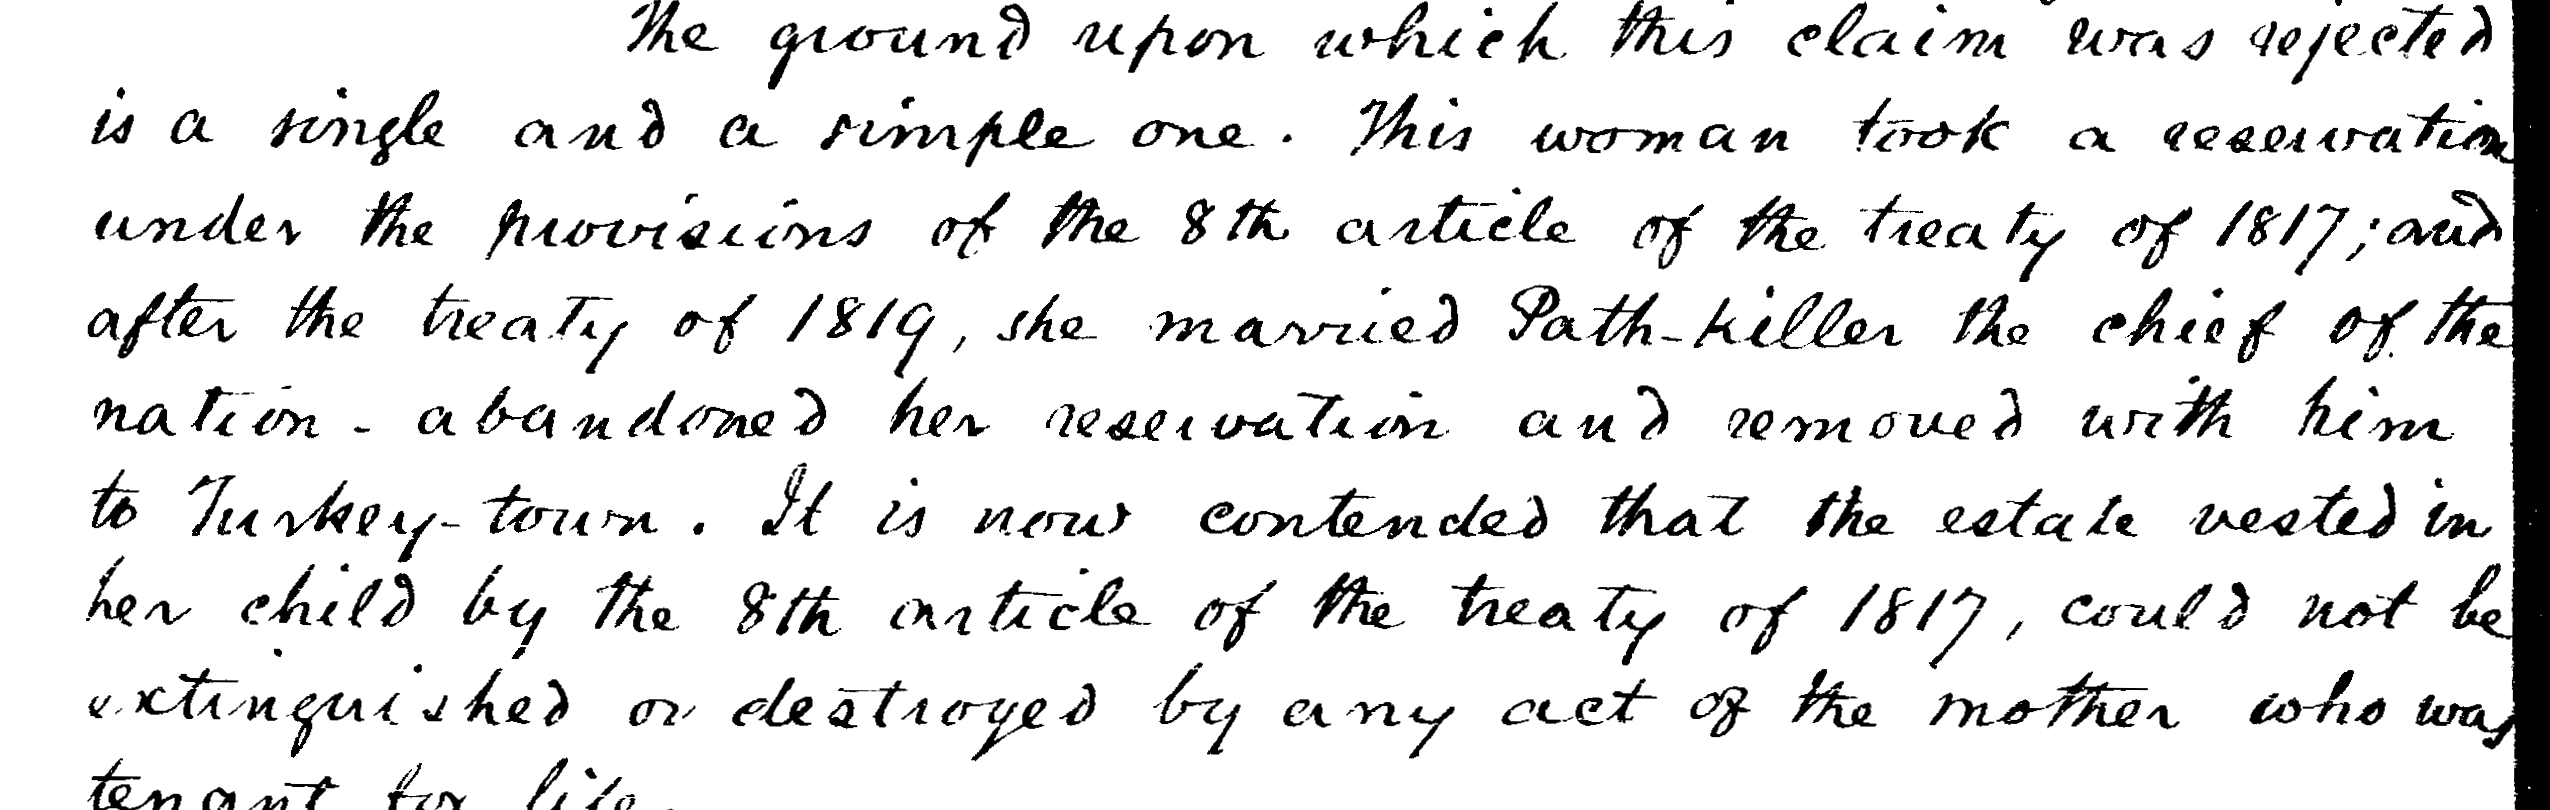 The ground upon which this claim was rejected
is a single and a simple one. This woman took a reservation
under the provisions of the 8th article of the treaty of 1817; and
after the treaty of 1819, she married Path-Killer the chief of the
nation - abandoned her reservation and removed with him
to Turkey-town. It is now contended that the estate vested in
her child by the 8th article of the treaty of 1817, could not be
extinguished or destroyed by any act of the mother who was
tenant for life.